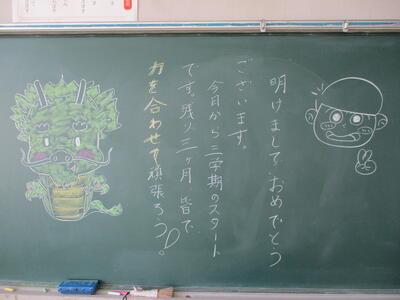 明けましておめでとう
ございます。
今日から三学期のスタート
です。残り三ヶ月、皆で
力を合わせて頑張ろう。